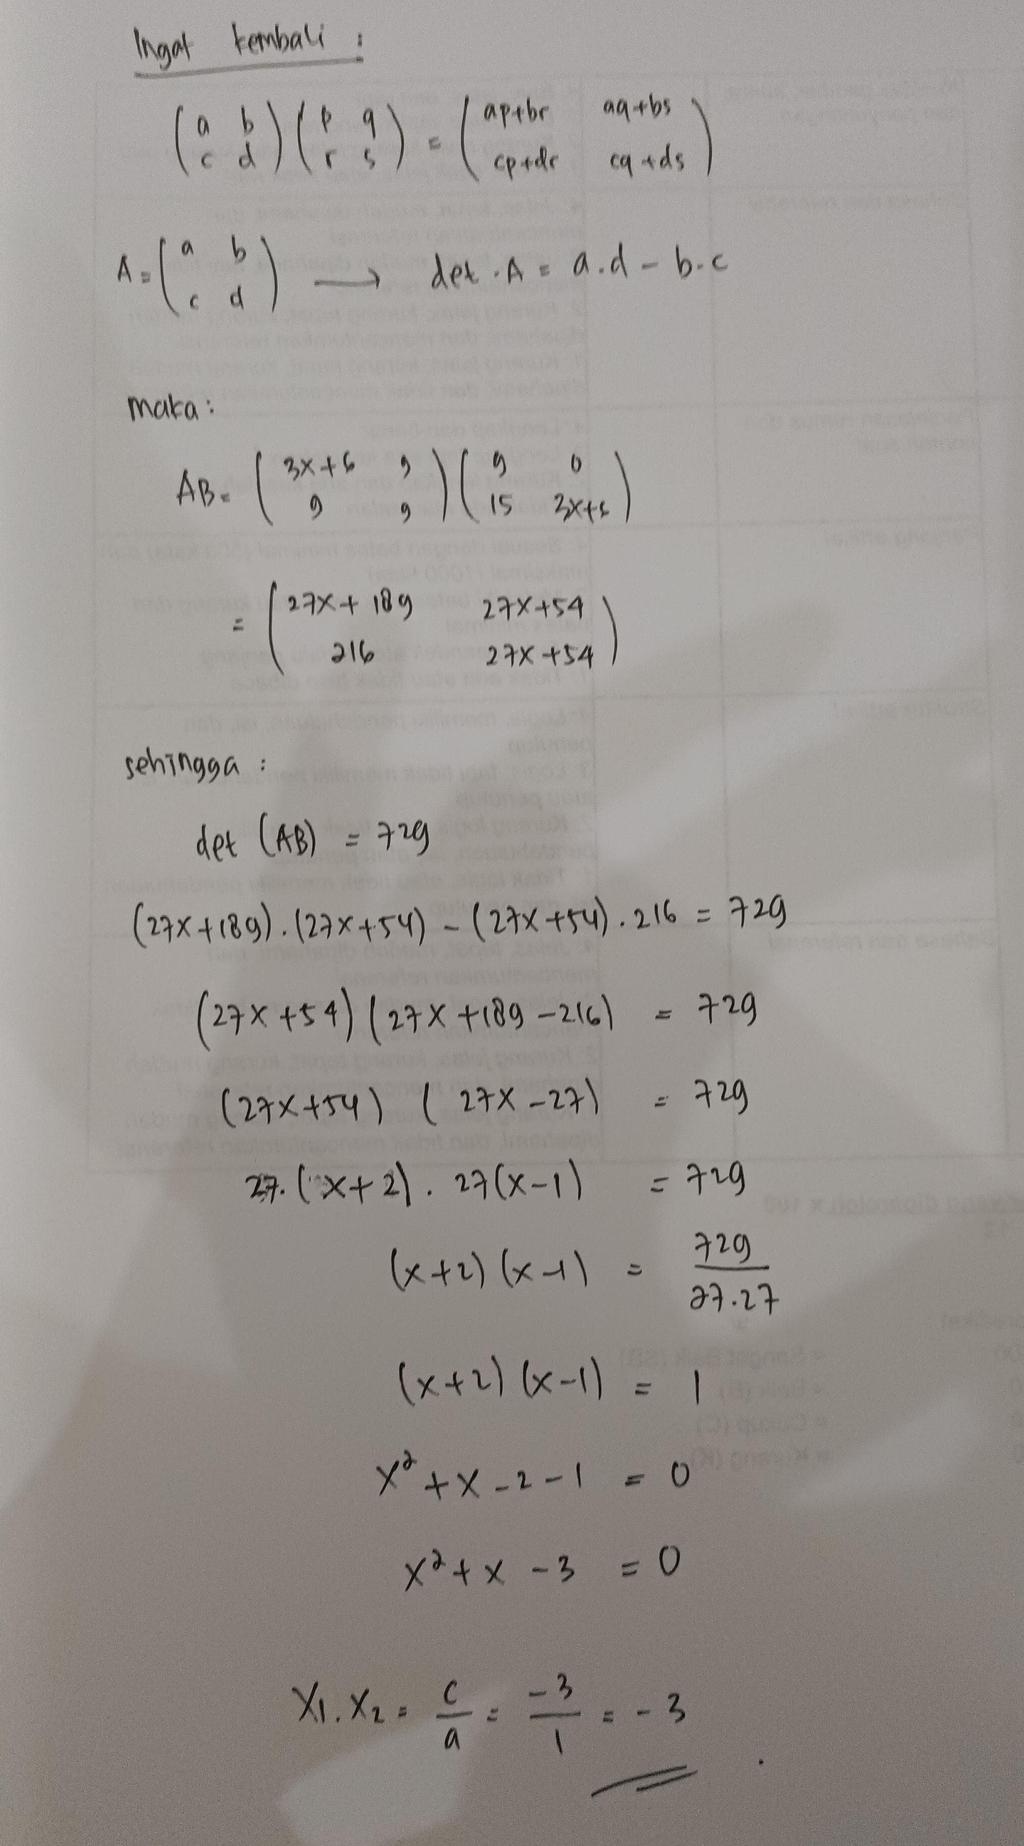 Ingat kembali :
(a b
c d) (p q
r s) = (ap+br aq+bs
cp+dr cq+ds)
A = (a b
c d) → det . A = a.d - b.c
maka :
AB = (3x+6 9
9 9) (9 0
15 3x+6)
= (27x + 189 27x+54
216 27x+54)
sehingga :
det (AB) = 729
(27x+189).(27x+54) - (27x+54).216 = 729
(27x+54) (27x+189-216) = 729
(27x+54) (27x-27) = 729
27.(x+2). 27(x-1) = 729
(x+2) (x-1) = 729/27.27
(x+2) (x-1) = 1
x² + x - 2 - 1 = 0
x² + x - 3 = 0
x1 . x2 = c/a = -3/1 = -3